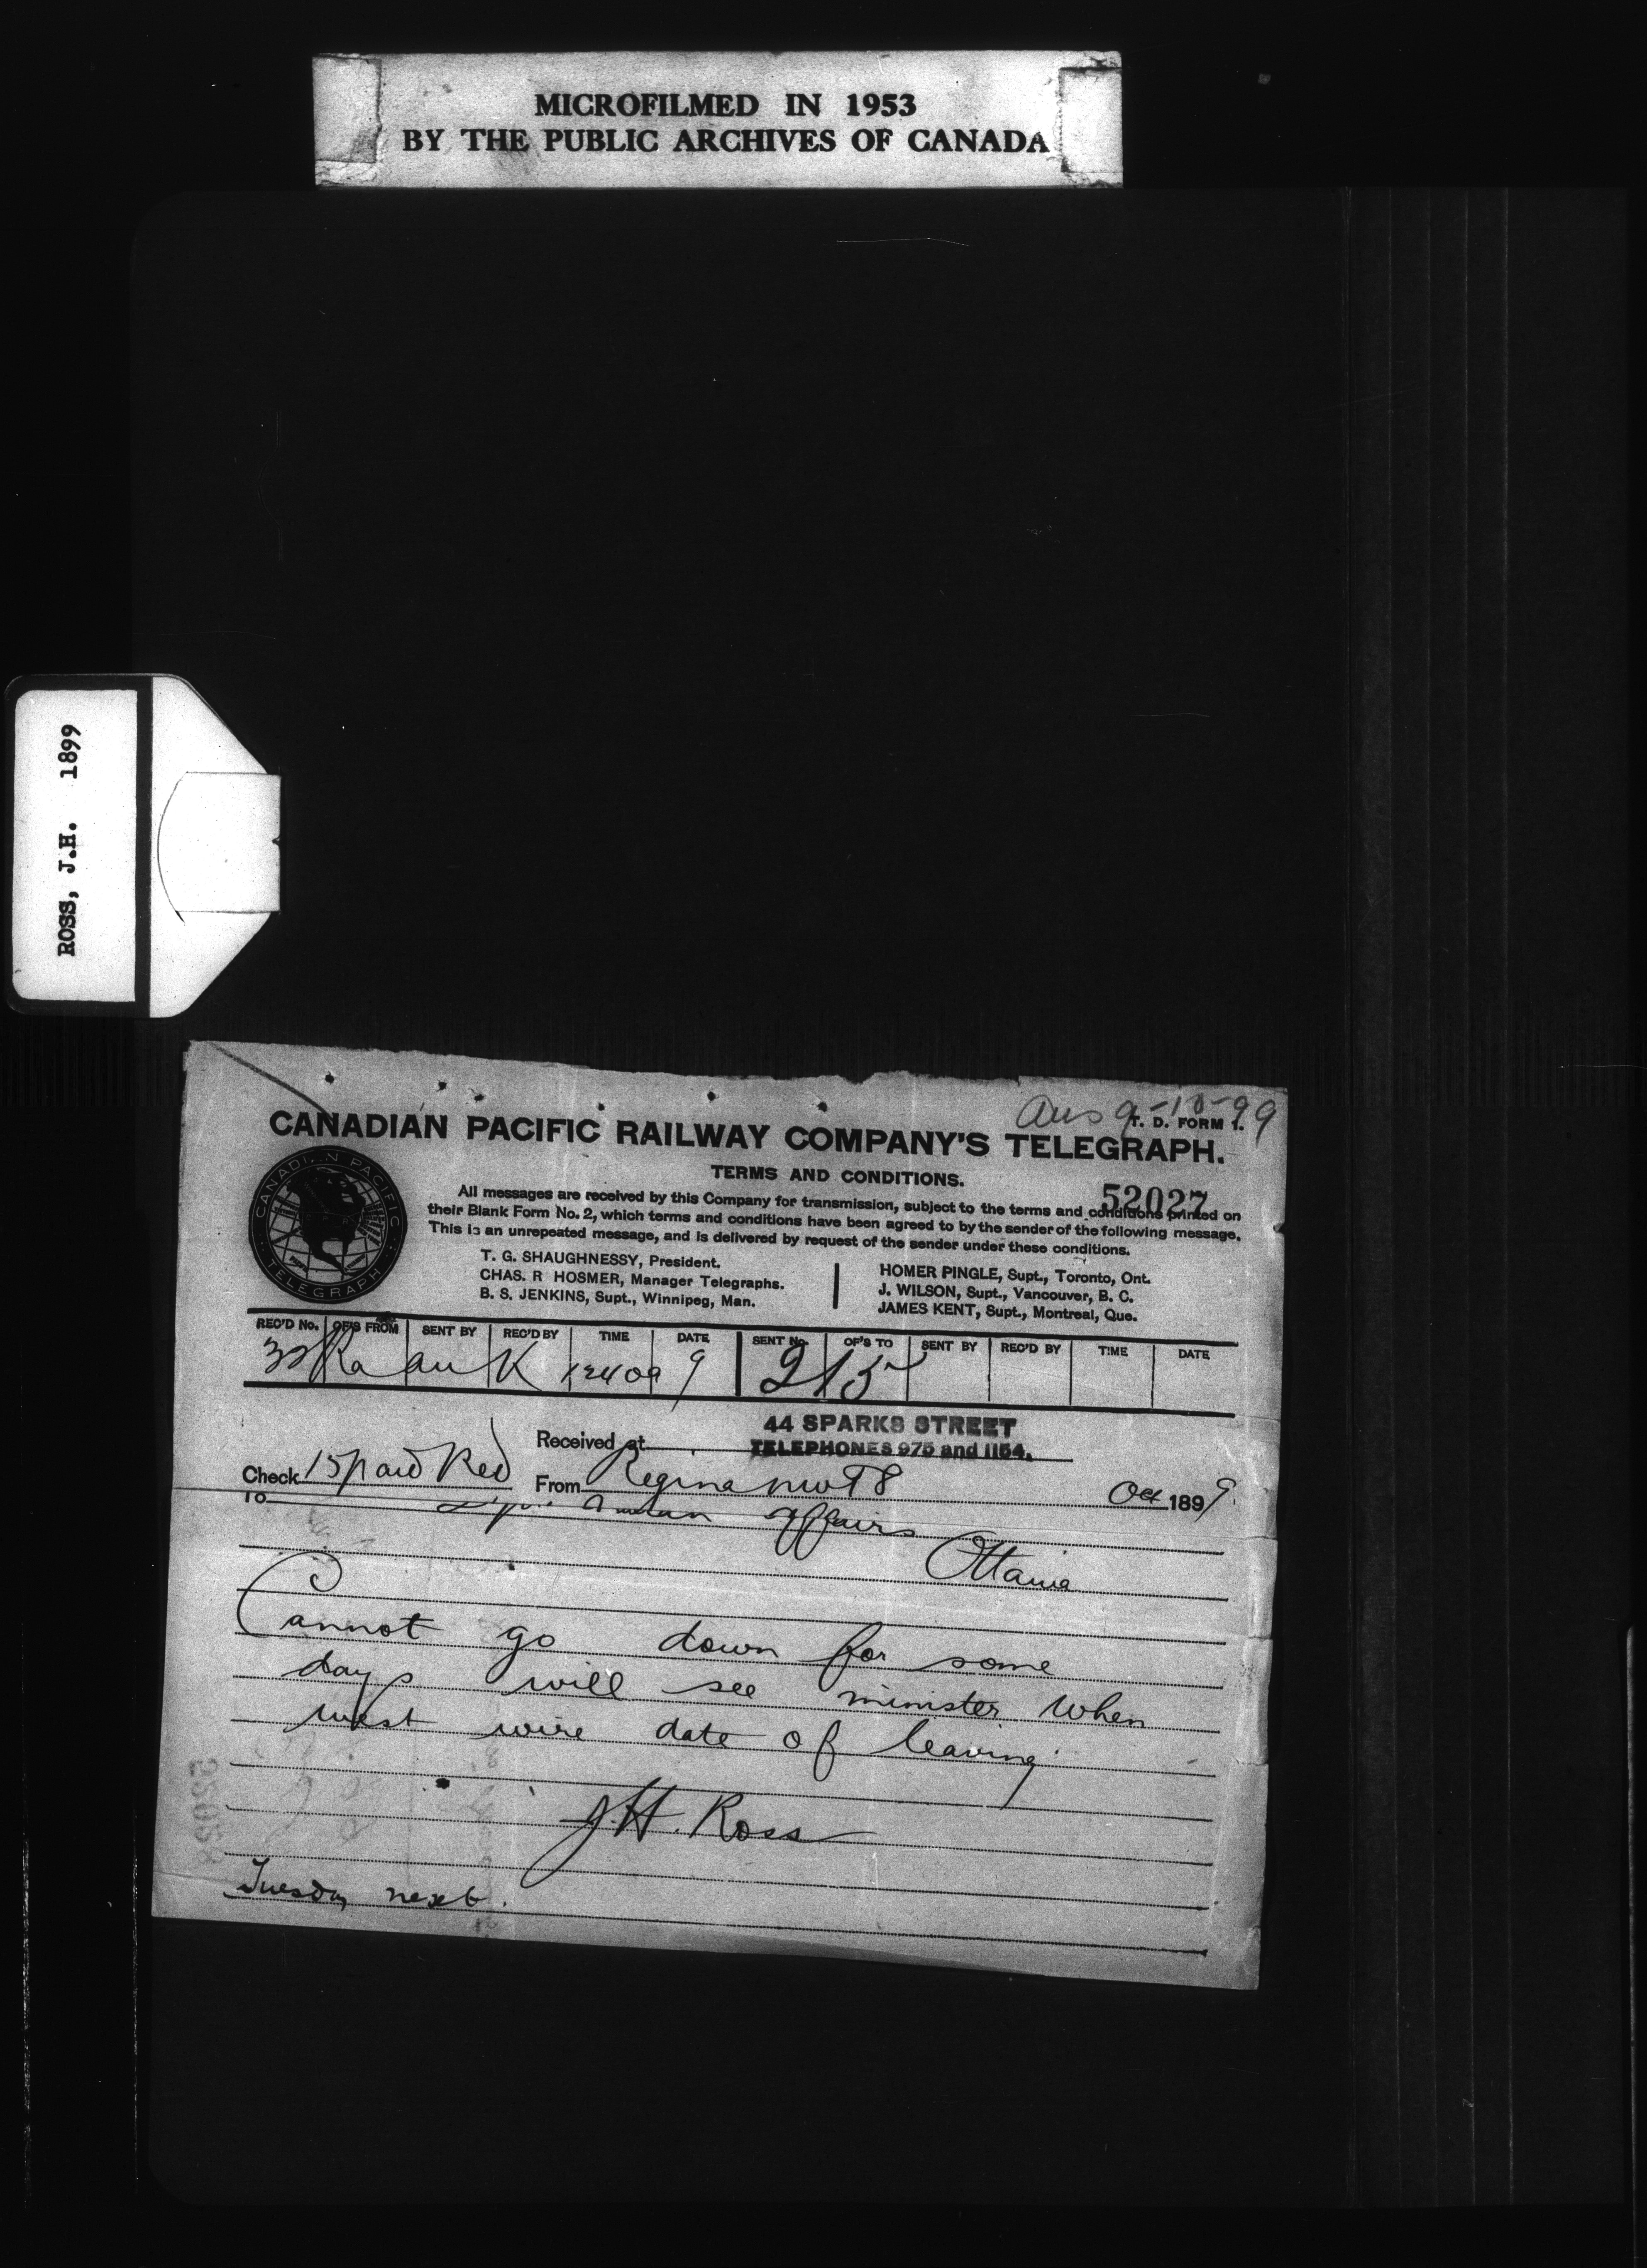 MICROFILMED IN 1953
BY THE PUBLIC ARCHIVES OF CANADA
ROSS, J.H. 1899
Ans 9-10-99
T. D. FORM 1.
CANADIAN PACIFIC RAILWAY COMPANY'S TELEGRAPH.
TERMS AND CONDITIONS.
52027
All messages are received by this Company for transmission, subject to the terms and conditions printed on
their Blank Form No. 2, which terms and conditions have been agreed to by the sender of the following message.
This is an unrepeated message, and is delivered by request of the sender under these conditions.
T. G. SHAUGHNESSY, President.
CHAS. R HOSMER, Manager Telegraphs.
B. S. JENKINS, Supt., Winnipeg, Man.
HOMER PINGLE, Supt., Toronto, Ont.
J. WILSON, Supt., Vancouver, B. C.
JAMES KENT, Supt., Montreal, Que.
CANADIAN PACIFIC
TELEGRAPH
REC'D No. OF'S FROM SENT BY REC'D BY TIME DATE SENT No. OF'S TO SENT BY REC'D BY TIME DATE
K 9 215
44 SPARKS STREET
Received at TELEPHONES 975 and 1154.
Check 15 paid Red From Regina NWT 8 Oct 1899
To Indian Affairs
Ottawa
Cannot go down for some
days will see minister when
west wire date of leaving
J.H. Ross
Tuesday next.